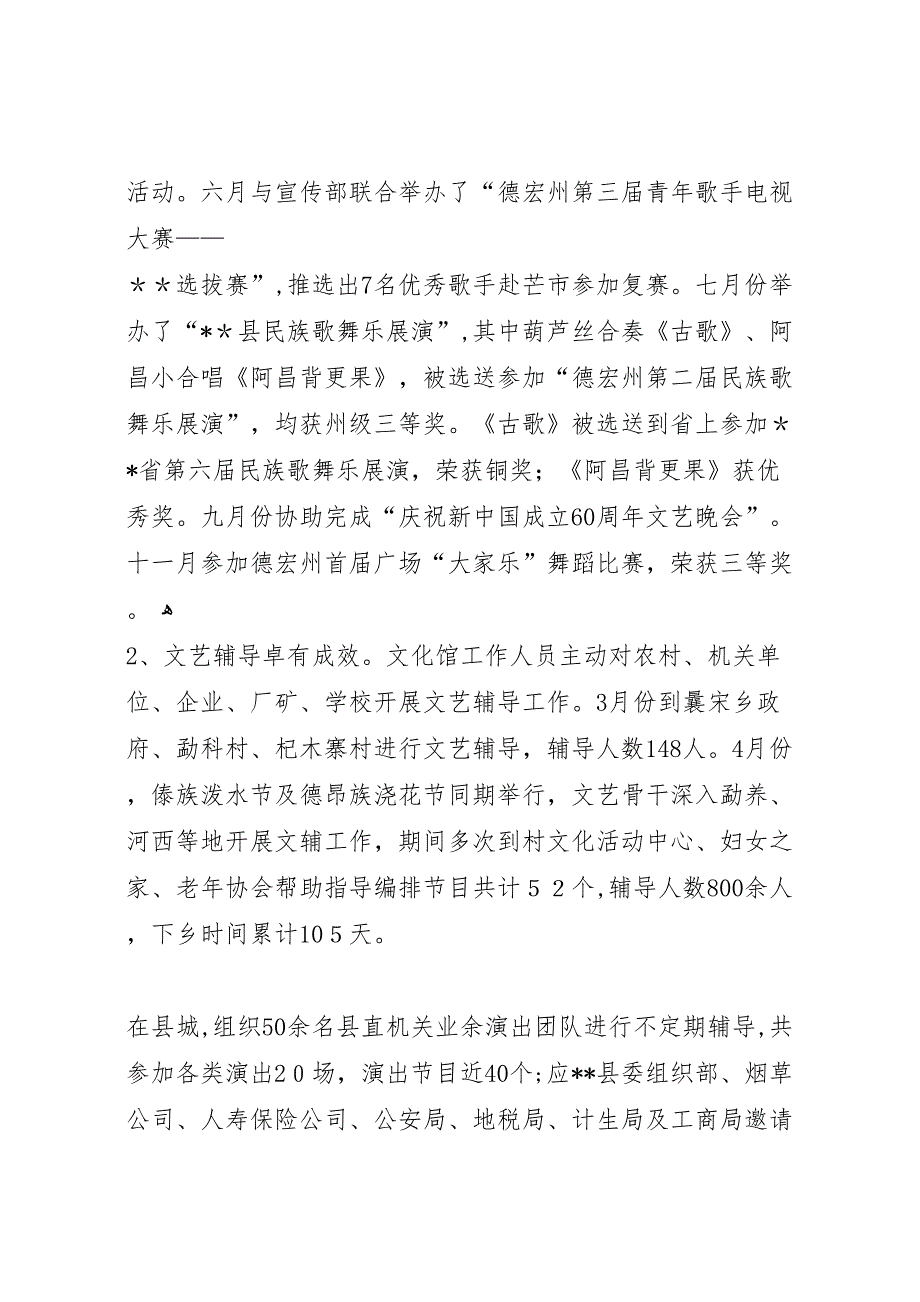 活动。六月与宣传部联合举办了“德宏州第三届青年歌手电视
大赛——
＊＊选拔赛”,推选出7名优秀歌手赴芒市参加复赛。七月份举
办了“*＊县民族歌舞乐展演”,其中葫芦丝合奏《古歌》、阿
昌小合唱《阿昌背更果》，被选送参加“德宏州第二届民族歌
舞乐展演”，均获州级三等奖。《古歌》被选送到省上参加＊
*省第六届民族歌舞乐展演，荣获铜奖；《阿昌背更果》获优
秀奖。九月份协助完成“庆祝新中国成立60周年文艺晚会”。
十一月参加德宏州首届广场“大家乐”舞蹈比赛，荣获三等奖
。ﻫ
2、文艺辅导卓有成效。文化馆工作人员主动对农村、机关单
位、企业、厂矿、学校开展文艺辅导工作。3月份到曩宋乡政
府、勐科村、杞木寨村进行文艺辅导，辅导人数148人。4月份
，傣族泼水节及德昂族浇花节同期举行，文艺骨干深入勐养、
河西等地开展文辅工作，期间多次到村文化活动中心、妇女之
家、老年协会帮助指导编排节目共计５２个,辅导人数800余人
，下乡时间累计10５天。
在县城,组织50余名县直机关业余演出团队进行不定期辅导,共
参加各类演出2０场，演出节目近40个;应**县委组织部、烟草
公司、人寿保险公司、公安局、地税局、计生局及工商局邀请